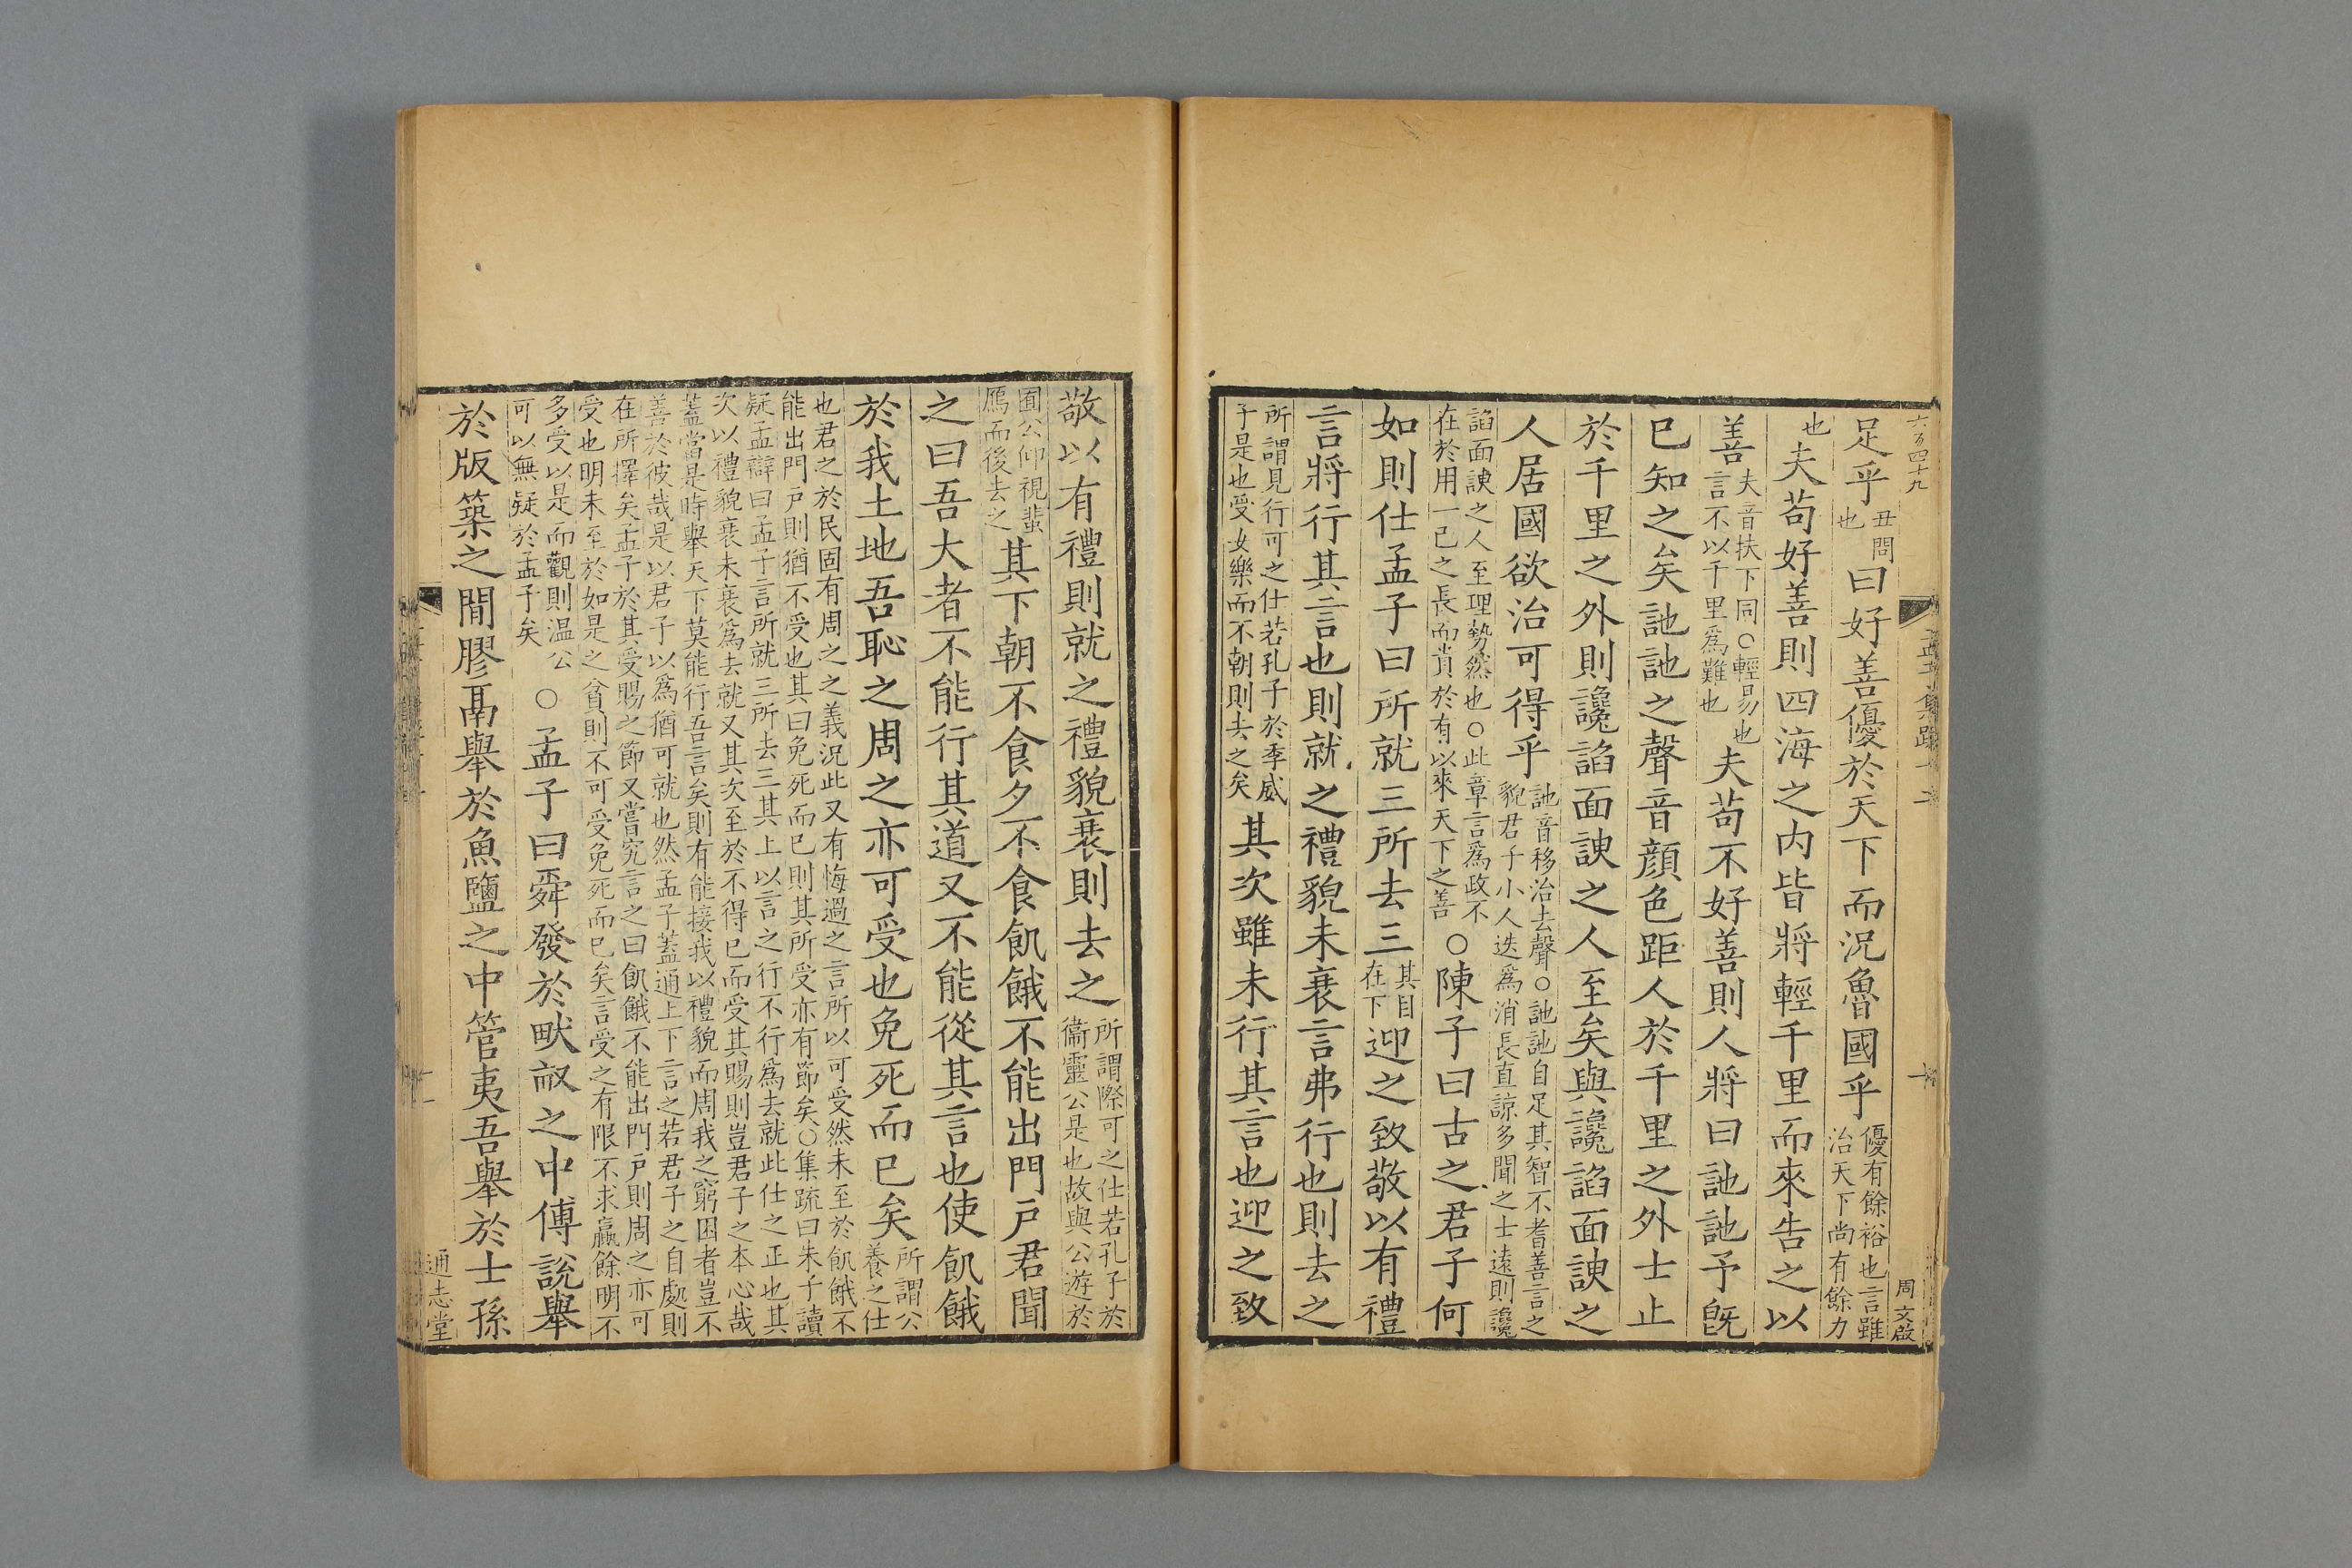 六百四十九
周文啟
足乎丑問也曰好善優於天下而況魯國乎優有餘裕也言雖治天下尚有餘力
也夫苟好善則四海之内皆將輕千里而來告之以
善夫音扶下同○輕易也言不以千里爲難也夫苟不好善則人將曰訑訑予旣
已知之矣訑訑之聲音顔色距人於千里之外士止
於千里之外則讒諂面諛之人至矣與讒諂面諛之
人居國欲治可得乎訑音移治去聲○訑訑自足其智不耆善言之貌君子小人迭爲消長直諒多聞之士遠則讒
諂面諛之人至理勢然也○此章言爲政不在於用一己之長而貴於有以來天下之善○陳子曰古之君子何
如則仕孟子曰所就三所去三其目在下迎之致敬以有禮
言將行其言也則就之禮貌未衰言弗行也則去之
所謂見行可之仕若孔子於季威子是也受女樂而不朝則去之矣其次雖未行其言也迎之致
敬以有禮則就之禮貌衰則去之所謂際可之仕若孔子於衞靈公是也故與公遊於
囿公仰視蜚鴈而後去之其下朝不食夕不食飢餓不能出門戶君聞
之曰吾大者不能行其道又不能從其言也使飢餓
於我土地吾恥之周之亦可受也免死而已矣所謂公養之仕
也君之於民固有周之之義況此又有悔過之言所以可受然未至於飢餓不
能出門戶則猶不受也其曰免死而已則其所受亦有節矣○集疏曰朱子讀
疑孟辯曰孟子言所就三所去三其上以言之行不行爲去就此仕之正也其
次以禮貌衰未衰爲去就又其次至於不得已而受其賜則豈君子之本心哉
蓋當是時舉天下莫能行吾言矣則有能接我以禮貌而周我之窮困者豈不
善於彼哉是以君子以爲猶可就也然孟子蓋通上下言之若君子之自處則
在所擇矣孟子於其受賜之節又嘗究言之曰飢餓不能出門戶則周之亦可
受也明未至於如是之貧則不可受免死而已矣言受之有限不求贏餘明不
多受以是而觀則温公可以無疑於孟子矣○孟子曰舜發於畎畝之中傅說舉
於版築之間膠鬲舉於魚鹽之中管夷吾舉於士孫
通志堂